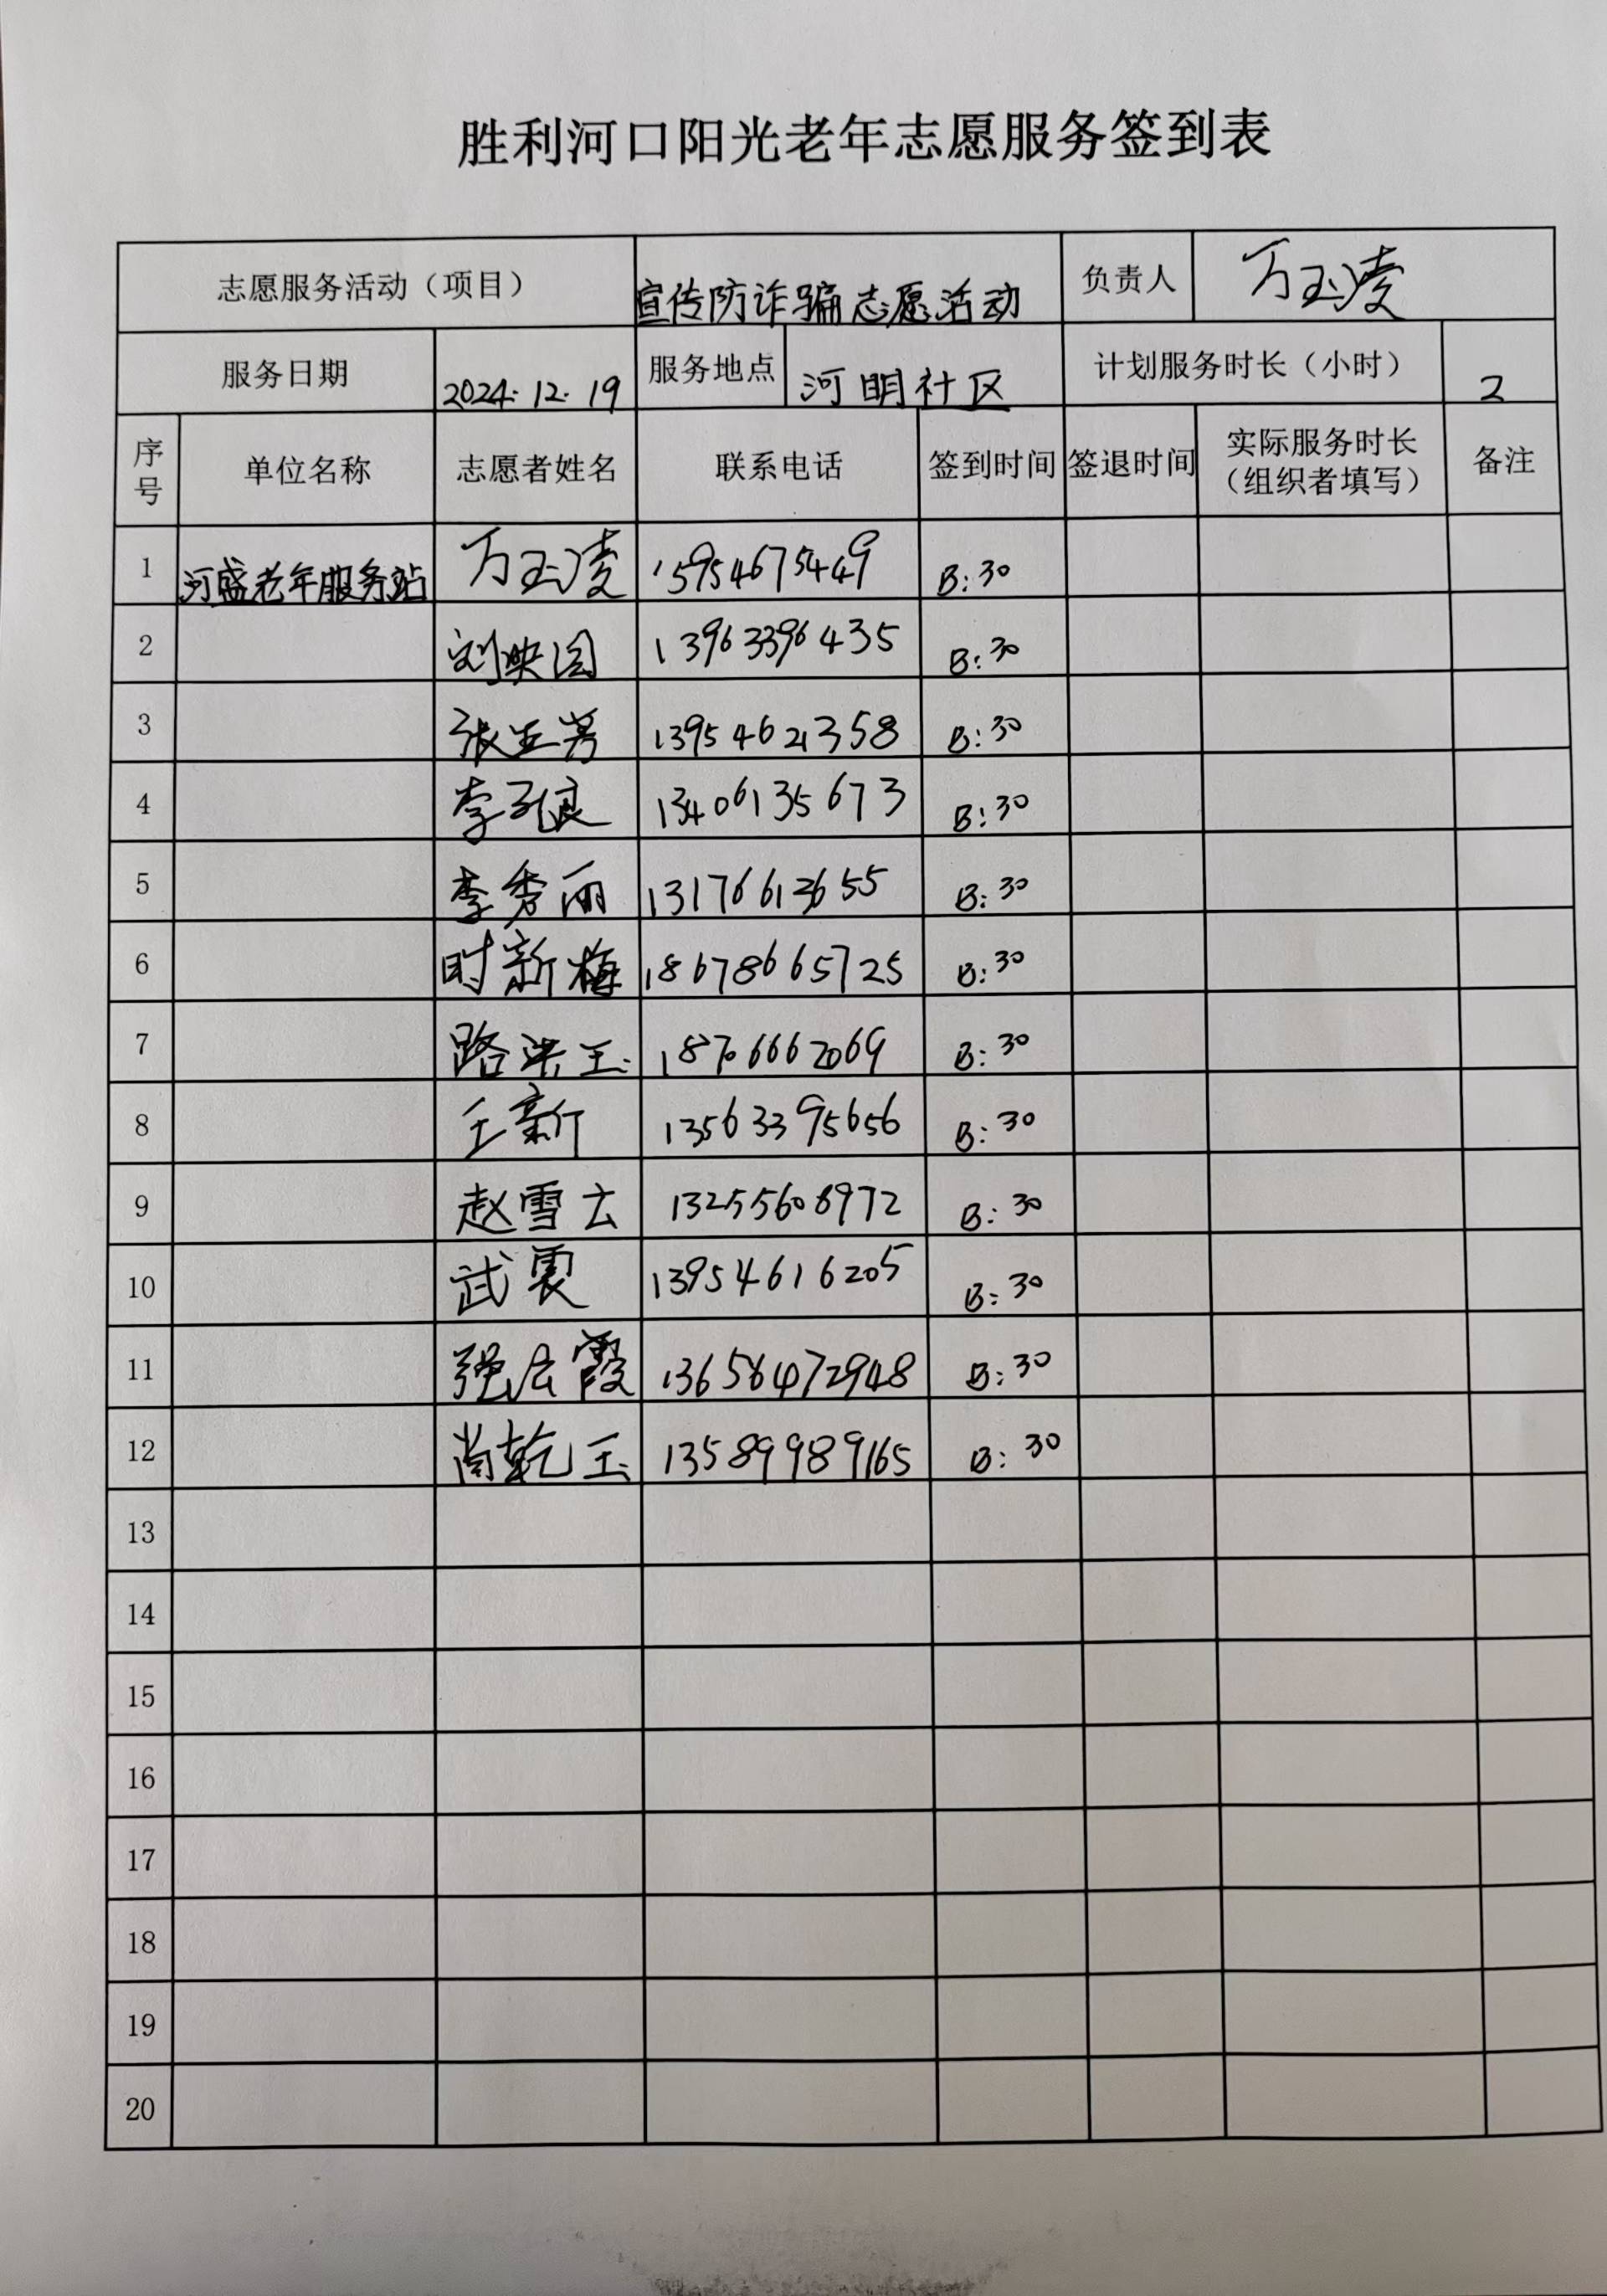 胜利河口阳光老年志愿服务签到表
志愿服务活动（项目） 宣传防诈骗志愿活动 负责人 万玉凌
服务日期 2024.12.19 服务地点 河明社区 计划服务时长（小时） 2
序号 单位名称 志愿者姓名 联系电话 签到时间 签退时间 实际服务时长（组织者填写） 备注
1 河盛老年服务站 万玉凌 15954675449 B:30
2 刘映国 13963396435 B:30
3 13954621358 B:30
4 李孔良 13406135673 B:30
5 李秀丽 13176613655 B:30
6 时新梅 18678665725 B:30
7 路洪玉 18706662069 B:30
8 王新 13563395656 B:30
9 赵雪云 13255608972 B:30
10 武震 13954616205 B:30
11 强云霞 13656472948 B:30
12 尚乾玉 13589989165 B:30
13
14
15
16
17
18
19
20